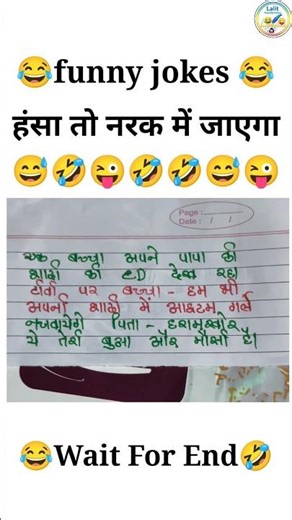 Lalit
😂funny jokes 😂
हंसा तो नरक में जाएगा
😅🤣😜🤣🤣😅😜
Page:
Date: / /
एक बच्चा अपने पापा की
शादी की CD देख रहा
टीवी पर बच्चा - हम भी
अपनी शादी में आइटम गर्ल
नचवायेंगे पिता - हरामखोर
ये तेरी बुआ और मौसी है।
😂Wait For End🤣